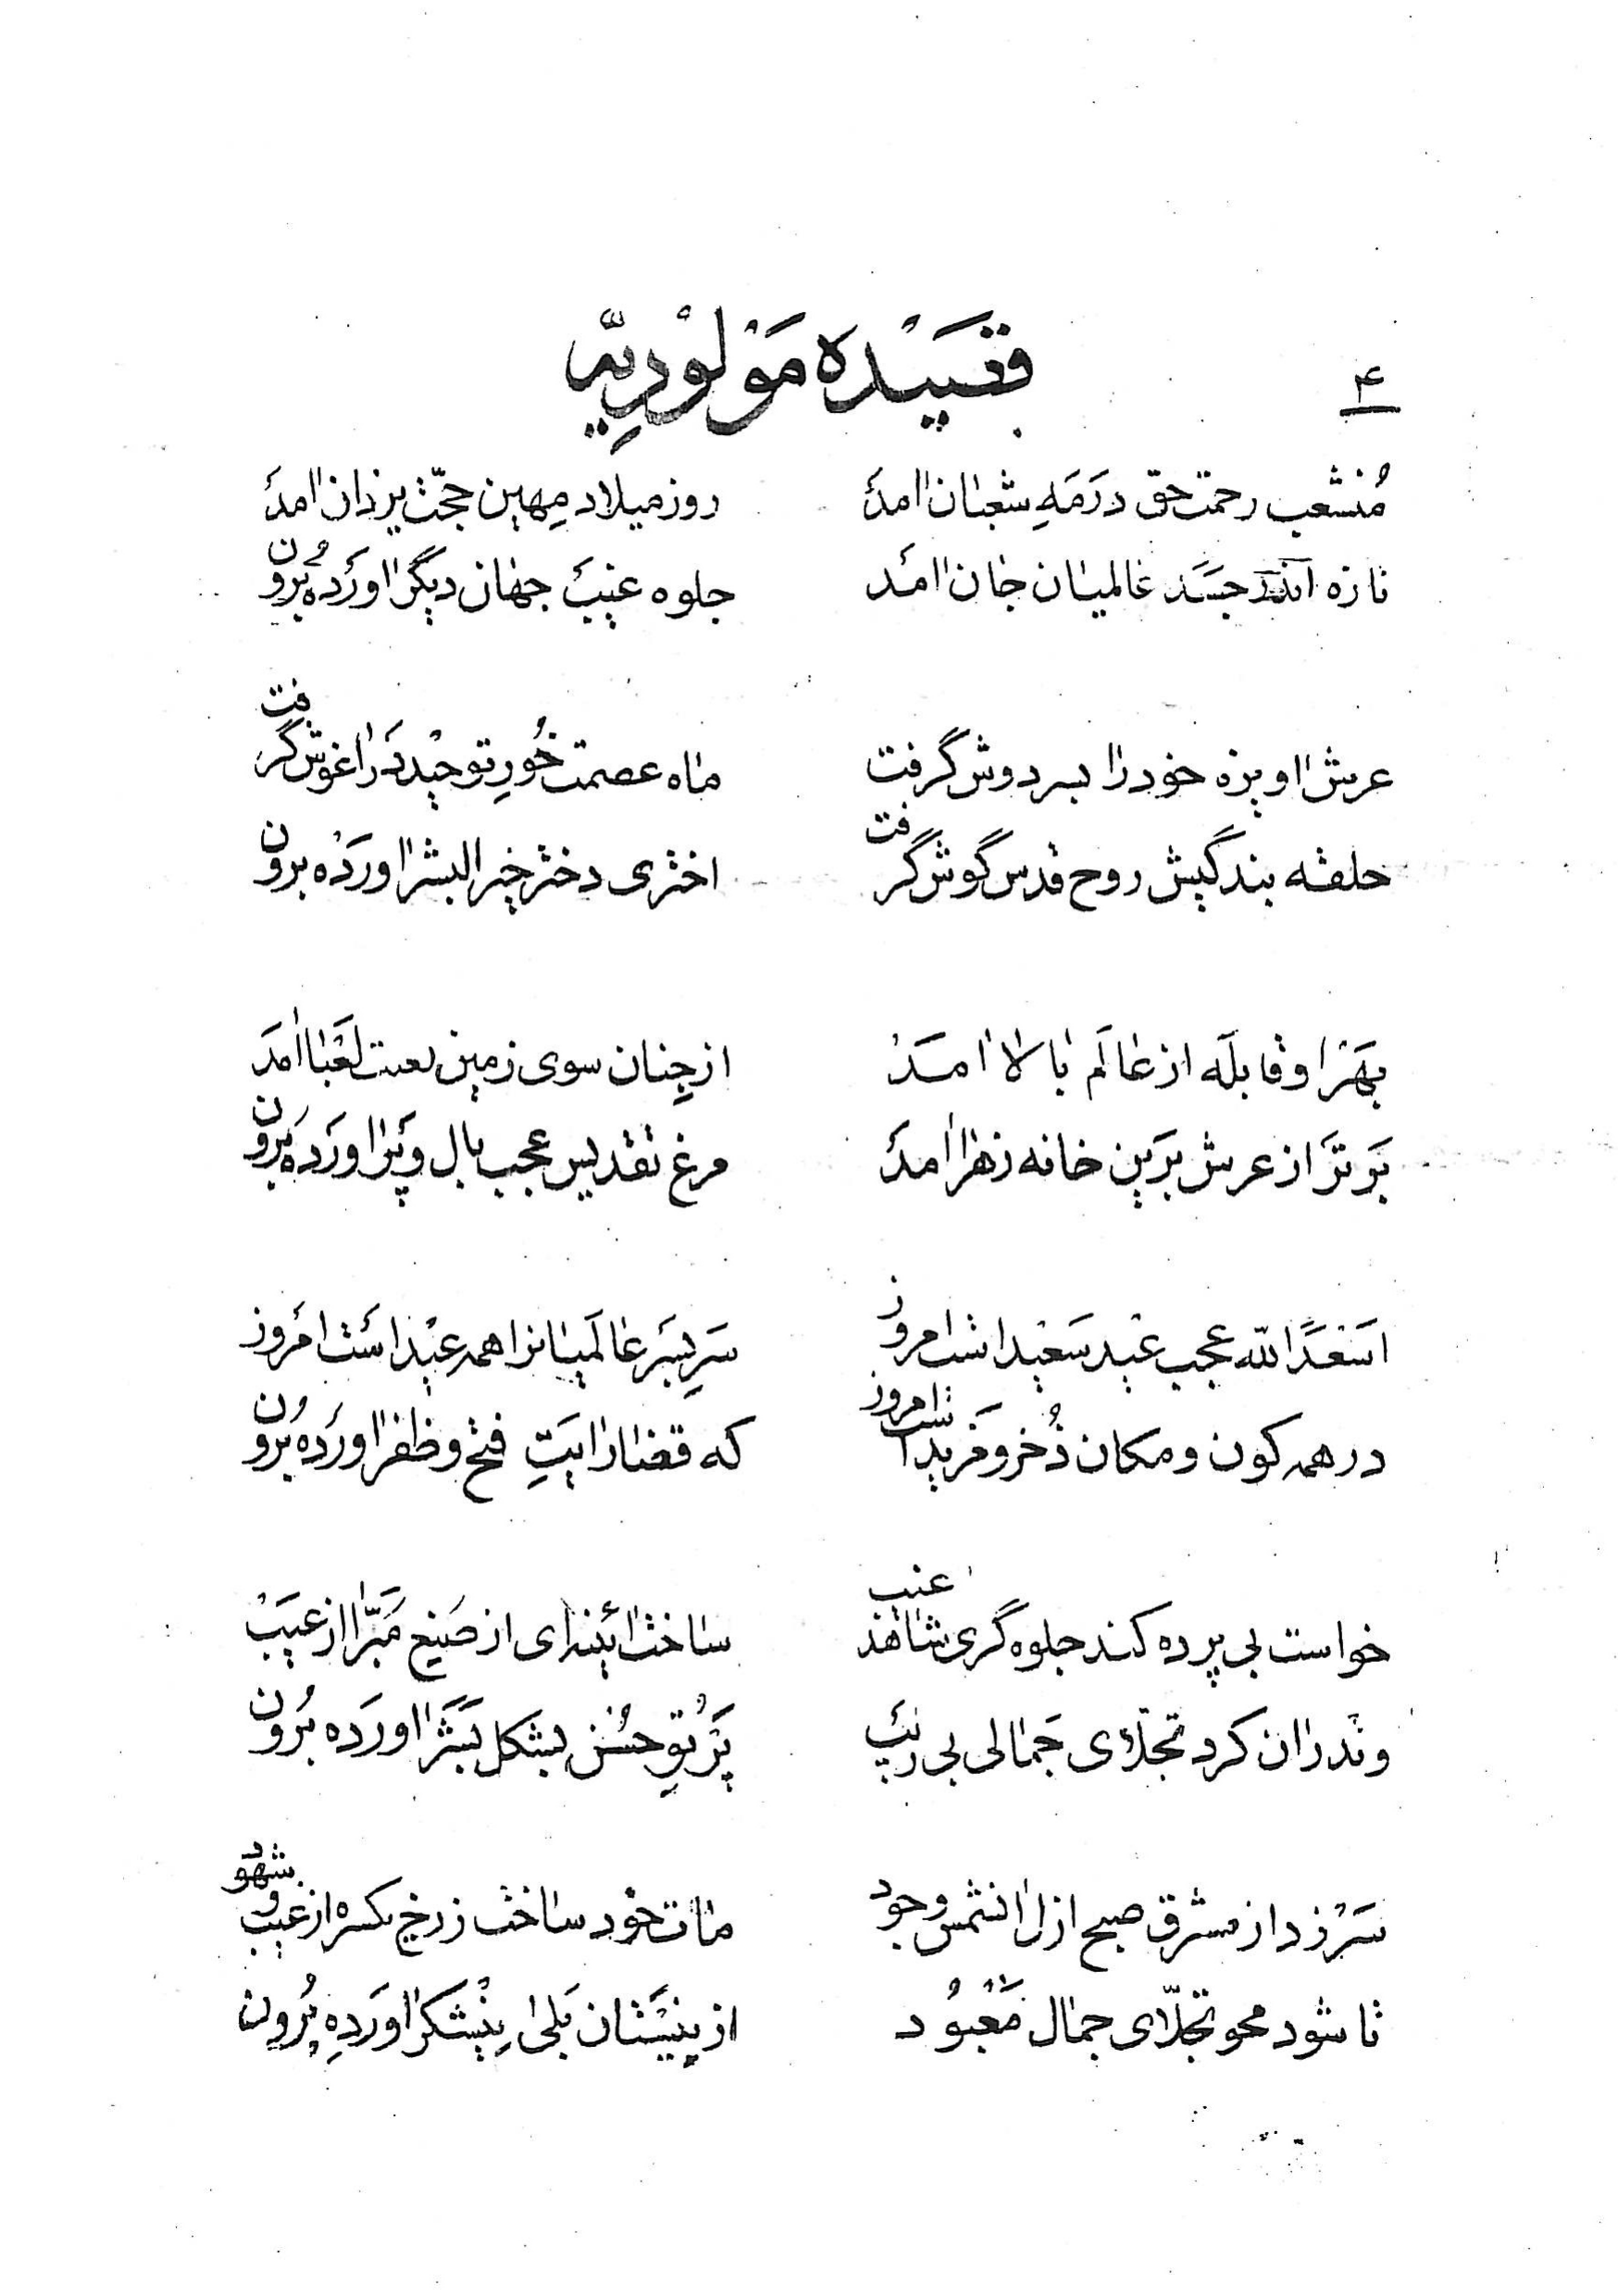 ۴
قصیده مولودیه
مُنشعب رحمت حق در مَهِ شعبان امد روز میلاد مِهین حجّت یزدان امد
تازه اندر جسَد عالمیان جان امد جلوه غیب جهان دیگر اورده بُرون
عرش اویزه خود را بسر دوش گرفت ماه عصمت خُورِ توحید در اغوش گرفت
حلقه بندگیش روح قدس گوش گرفت اختری دختر خیر البشر اورده برون
بهر او قابله از عالم بالا امد از جِنان سوی زمین لعبا امد
برتر از عرش برین خانه زهرا امد مرغ تقدیس عجب بال و پر اورده برون
اسعدَ الله عجب عید سَعید است امروز سَرِبسَر عالمیانرا همه عید است امروز
در همه کون و مکان ذُخر و فرید است امروز که قضا رایَتِ فتح و ظفر اورده بُرون
خواست بی پرده کند جلوه گری شاهد غیب ساخت ائینه‌ای از صَنیع مَبّرا از عیب
وندران کرد تجلّای جَمالی بی رَیب پَرتوِ حُسن بشکل بَشَر اورَده بُرون
سَر زد از مشرق صبح ازل انشمس وجود مات خود ساخت زرخ یکسره از غیب و شهود
تا شود محو تجلّای جمال مَعْبوُد از نِیَسْتان بَلی اِینْشکر اورَدهِ بُرون